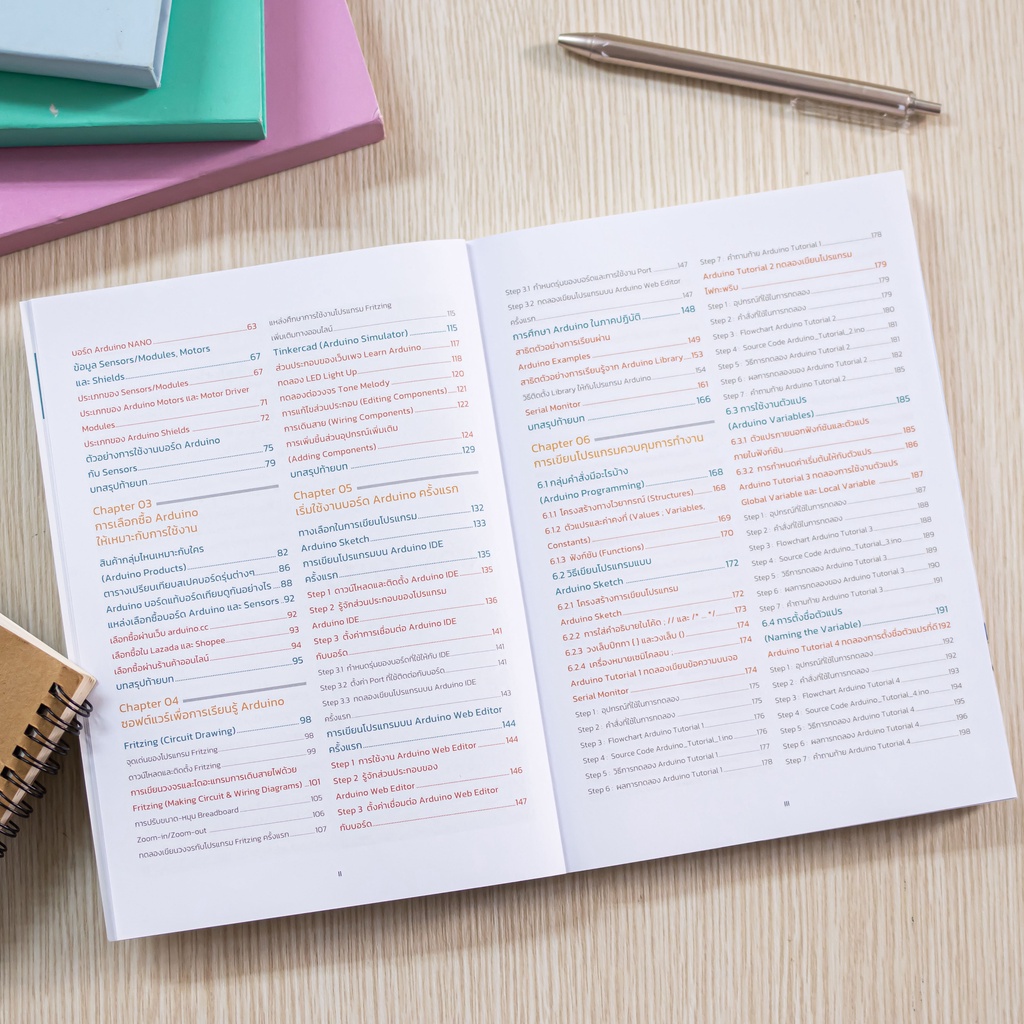 บอร์ด Arduino NANO 63
ข้อมูล Sensors/Modules, Motors
และ Shields 67
ประเภทของ Sensors/Modules 67
ประเภทของ Arduino Motors และ Motor Driver
Modules 71
ประเภทของ Arduino Shields 72
ตัวอย่างการใช้งานบอร์ด Arduino
กับ Sensors 75
บทสรุปท้ายบท 79
Chapter 03
การเลือกซื้อ Arduino
ให้เหมาะกับการใช้งาน
สินค้ากลุ่มไหนเหมาะกับใคร
(Arduino Products) 82
ตารางเปรียบเทียบสเปคบอร์ดรุ่นต่างๆ 86
Arduino บอร์ดแท้บอร์ดเทียบดูกันอย่างไร 88
แหล่งเลือกซื้อบอร์ด Arduino และ Sensors 92
เลือกซื้อผ่านเว็บ arduino.cc 92
เลือกซื้อใน Lazada และ Shopee 93
เลือกซื้อผ่านร้านค้าออนไลน์ 94
บทสรุปท้ายบท 95
Chapter 04
ซอฟต์แวร์เพื่อการเรียนรู้ Arduino
Fritzing (Circuit Drawing) 98
จุดเด่นของโปรแกรม Fritzing 98
ดาวน์โหลดและติดตั้ง Fritzing 99
การเขียนวงจรและไดอะแกรมการเดินสายไฟด้วย
Fritzing (Making Circuit & Wiring Diagrams) 101
การปรับขนาด-หมุน Breadboard 105
Zoom-in/Zoom-out 106
ทดลองเขียนวงจรกับโปรแกรม Fritzing ครั้งแรก 107
แหล่งศึกษาการใช้งานโปรแกรม Fritzing
เพิ่มเติมทางออนไลน์ 115
Tinkercad (Arduino Simulator) 115
ส่วนประกอบของเว็บเพจ Learn Arduino 117
ทดลอง LED Light Up 118
ทดลองต่อวงจร Tone Melody 120
การแก้ไขส่วนประกอบ (Editing Components) 121
การเดินสาย (Wiring Components) 122
การเพิ่มชิ้นส่วนอุปกรณ์เพิ่มเติม
(Adding Components) 124
บทสรุปท้ายบท 129
Chapter 05
เริ่มใช้งานบอร์ด Arduino ครั้งแรก
ทางเลือกในการเขียนโปรแกรม 132
Arduino Sketch 133
การเขียนโปรแกรมบน Arduino IDE
ครั้งแรก 135
Step 1 ดาวน์โหลดและติดตั้ง Arduino IDE 135
Step 2 รู้จักส่วนประกอบของโปรแกรม
Arduino IDE 136
Step 3 ตั้งค่าการเชื่อมต่อ Arduino IDE
กับบอร์ด 141
Step 3.1 กำหนดรุ่นของบอร์ดที่ใช้ให้กับ IDE 141
Step 3.2 ตั้งค่า Port ที่ใช้ติดต่อกับบอร์ด 141
Step 3.3 ทดลองเขียนโปรแกรมบน Arduino IDE
ครั้งแรก 143
การเขียนโปรแกรมบน Arduino Web Editor
ครั้งแรก 144
Step 1 การใช้งาน Arduino Web Editor 144
Step 2 รู้จักส่วนประกอบของ
Arduino Web Editor 146
Step 3 ตั้งค่าเชื่อมต่อ Arduino Web Editor
กับบอร์ด 147
II
Step 3.1 กำหนดรุ่นของบอร์ดและการใช้งาน Port 147
Step 3.2 ทดลองเขียนโปรแกรมบน Arduino Web Editor
ครั้งแรก 147
การศึกษา Arduino ในภาคปฏิบัติ 148
สาธิตตัวอย่างการเรียนผ่าน
Arduino Examples 149
สาธิตตัวอย่างการเรียนรู้จาก Arduino Library 153
วิธีติดตั้ง Library ให้กับโปรแกรม Arduino 154
Serial Monitor 161
บทสรุปท้ายบท 166
Chapter 06
การเขียนโปรแกรมควบคุมการทำงาน
6.1 กลุ่มคำสั่งมีอะไรบ้าง
(Arduino Programming) 168
6.1.1 โครงสร้างทางไวยากรณ์ (Structures) 168
6.1.2 ตัวแปรและค่าคงที่ (Values , Variables,
Constants) 169
6.1.3 ฟังก์ชัน (Functions) 170
6.2 วิธีเขียนโปรแกรมแบบ
Arduino Sketch 172
6.2.1 โครงสร้างการเขียนโปรแกรม
Arduino Sketch 172
6.2.2 การใส่คำอธิบายในโค้ด ; // และ /* .. */ 173
6.2.3 วงเล็บปีกกา { } และวงเล็บ () 174
6.2.4 เครื่องหมายเซมิโคลอน ; 174
Arduino Tutorial 1 ทดลองเขียนข้อความบนจอ
Serial Monitor 174
Step 1 : อุปกรณ์ที่ใช้ในการทดลอง 175
Step 2 : คำสั่งที่ใช้ในการทดลอง 175
Step 3 : Flowchart Arduino Tutorial 1 176
Step 4 : Source Code Arduino_Tutorial_1.ino 176
Step 5 : วิธีการทดลอง Arduino Tutorial 1 177
Step 6 : ผลการทดลอง Arduino Tutorial 1 178
Step 7 : คำถามท้าย Arduino Tutorial 1 178
Arduino Tutorial 2 ทดลองเขียนโปรแกรม
ไฟกะพริบ 179
Step 1 : อุปกรณ์ที่ใช้ในการทดลอง 179
Step 2 : คำสั่งที่ใช้ในการทดลอง 179
Step 3 : Flowchart Arduino Tutorial 2 180
Step 4 : Source Code Arduino_Tutorial_2.ino 181
Step 5 : วิธีการทดลอง Arduino Tutorial 2 181
Step 6 : ผลการทดลองของ Arduino Tutorial 2 182
Step 7 : คำถามท้าย Arduino Tutorial 2 185
6.3 การใช้งานตัวแปร
(Arduino Variables) 185
6.3.1 ตัวแปรภายนอกฟังก์ชันและตัวแปร
ภายในฟังก์ชัน 185
6.3.2 การกำหนดค่าเริ่มต้นให้กับตัวแปร 186
Arduino Tutorial 3 ทดลองการใช้งานตัวแปร
Global Variable และ Local Variable 187
Step 1 : อุปกรณ์ที่ใช้ในการทดลอง 187
Step 2 : คำสั่งที่ใช้ในการทดลอง 188
Step 3 : Flowchart Arduino Tutorial 3 188
Step 4 : Source Code Arduino_Tutorial_3.ino 189
Step 5 : วิธีการทดลอง Arduino Tutorial 3 189
Step 6 : ผลการทดลองของ Arduino Tutorial 3 190
Step 7 : คำถามท้าย Arduino Tutorial 3 191
6.4 การตั้งชื่อตัวแปร
(Naming the Variable) 191
Arduino Tutorial 4 ทดลองการตั้งชื่อตัวแปรที่ดี 192
Step 1 : อุปกรณ์ที่ใช้ในการทดลอง 192
Step 2 : คำสั่งที่ใช้ในการทดลอง 193
Step 3 : Flowchart Arduino Tutorial 4 193
Step 4 : Source Code Arduino_Tutorial_4.ino 194
Step 5 : วิธีการทดลอง Arduino Tutorial 4 195
Step 6 : ผลการทดลอง Arduino Tutorial 4 196
Step 7 : คำถามท้าย Arduino Tutorial 4 198
III